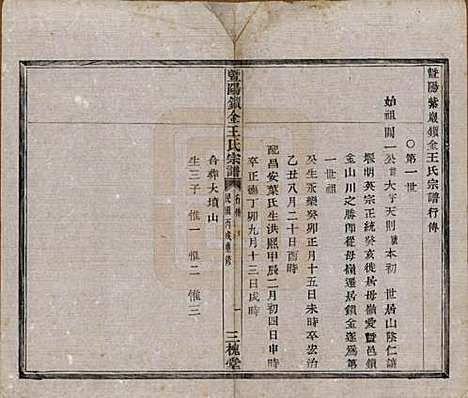 暨陽紫巖鎖金王氏宗譜行傳
○第一世
始祖開一公諱大字天則號本初 世居山陰仁讓
堰明英宗正統癸亥徙居母嶺愛暨邑鎖
金山川之勝師從母嶺遷居鎖金遂爲第
一世祖
癸生永樂癸卯正月十五日未時卒宏治
乙丑八月二十日酉時
配昌安葉氏生洪熙甲辰二月初四日申時
卒正德丁卯九月十三日戌時
合葬大墳山
生三子 惟一 惟二 惟三
暨陽鎖金王氏宗譜 民國丙戌重修 一 三槐堂